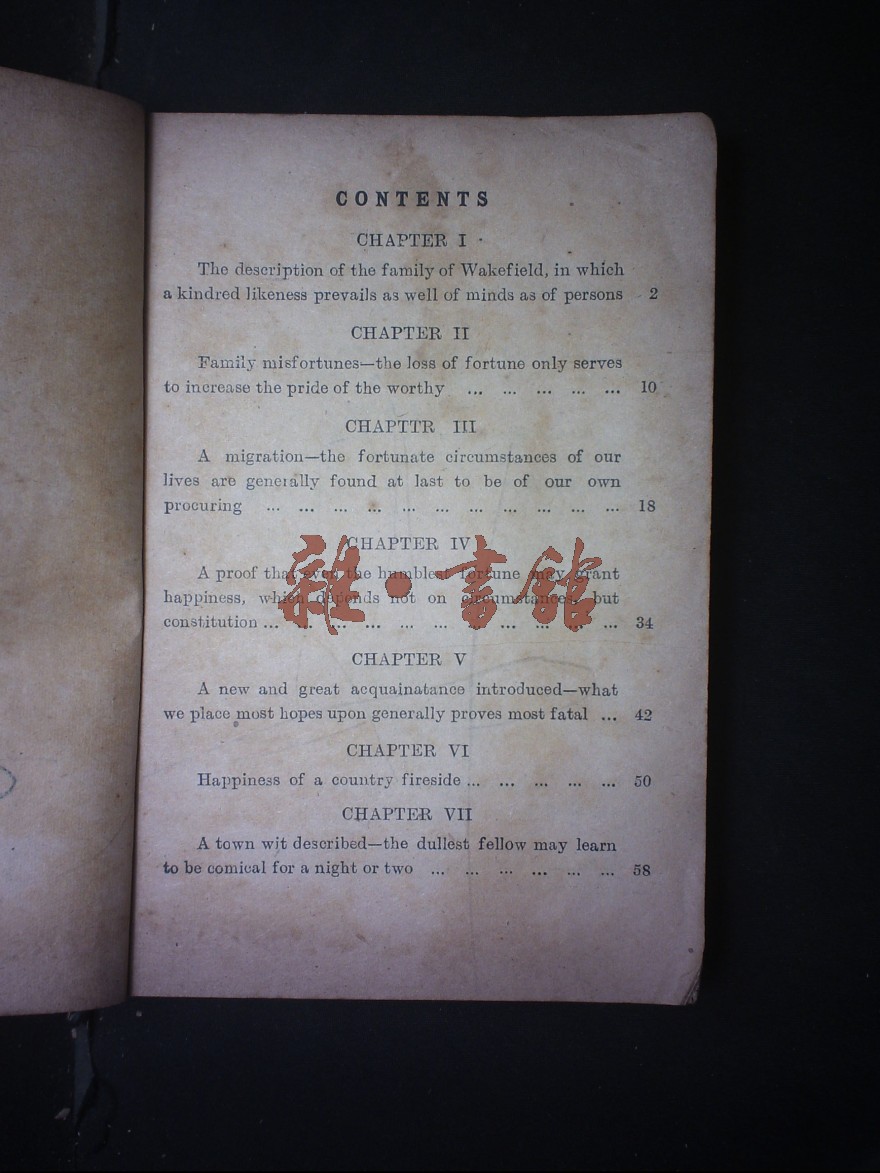 CONTENTS
CHAPTER I
The description of the family of Wakefield, in which
a kindred likeness prevails as well of minds as of persons 2
CHAPTER II
Family misfortunes—the loss of fortune only serves
to increase the pride of the worthy ... ... ... ... ... 10
CHAPTTR III
A migration—the fortunate circumstances of our
lives are generally found at last to be of our own
procuring ... ... ... ... ... ... ... ... ... ... ... 18
CHAPTER IV
A proof that even the humblest fortune may grant
happiness, which depends not on circumstances, but
constitution ... ... ... ... ... ... ... ... ... ... ... 34
雜·書館
CHAPTER V
A new and great acquainatance introduced—what
we place most hopes upon generally proves most fatal ... 42
CHAPTER VI
Happiness of a country fireside ... ... ... ... ... 50
CHAPTER VII
A town wit described—the dullest fellow may learn
to be comical for a night or two ... ... ... ... ... ... 58